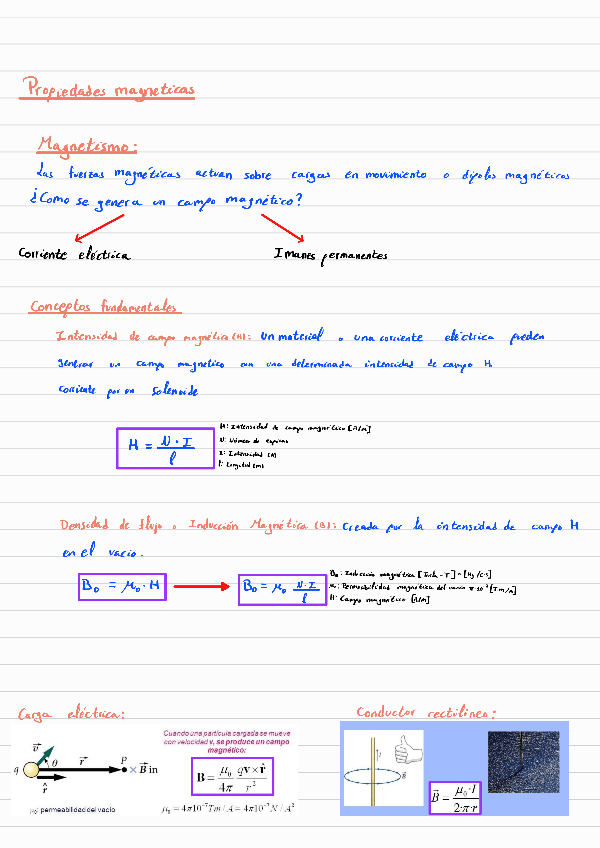 Propiedades magneticas
Magnetismo:
Las fuerzas magnéticas actuan sobre cargas en movimiento o dipolos magnéticos
¿Como se genera un campo magnético?
Corriente eléctrica
Imanes permanentes
Conceptos fundamentales
Intensidad de campo magnético (H): Un material o una corriente eléctrica pueden
generar un campo magnetico con una determinada intensidad de campo H
Corriente por un Solenoide
H = N · I / l
H: Intensidad de campo magnético [A/m]
N: Número de espiras
I: Intensidad (A)
l: Longitud (m)
Densidad de flujo o Inducción Magnética (B): Creada por la intensidad de campo H
en el vacio.
B₀ = μ₀ · H
B₀ = μ₀ N·I / l
B₀: Inducción magnética
μ₀: Permeabilidad magnética del vacio
H: Campo magnético [A/m]
Carga eléctrica:
Conductor rectilíneo:
Cuando una partícula cargada se mueve
con velocidad v, se produce un campo
magnético:
v θ r P
q × B in
r̂
B = μ₀/4π qv × r̂ / r²
μ₀: permeabilidad del vacío
μ₀ = 4π10⁻⁷ Tm / A = 4π10⁻⁷ N / A²
I
B
B = μ₀·I / 2·π·r